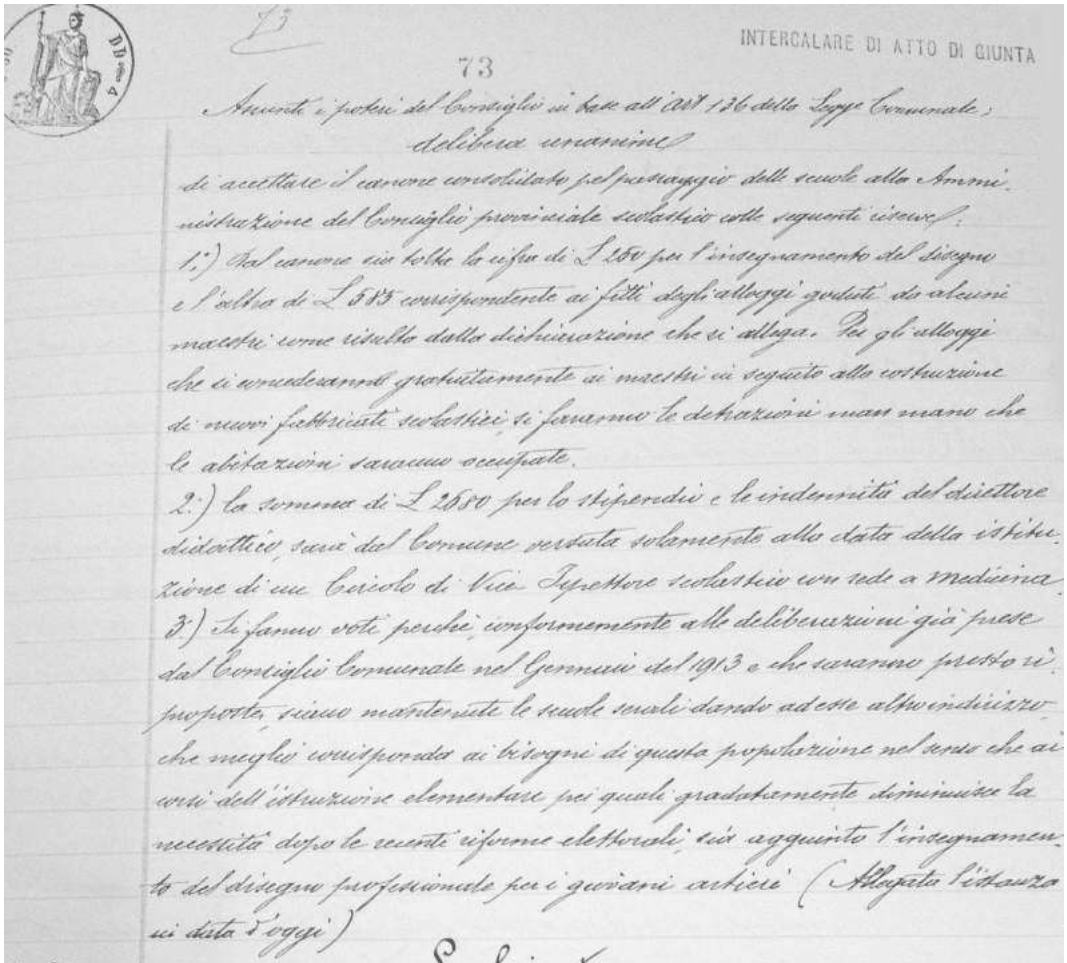 73
INTERCALARE DI ATTO DI GIUNTA
73
Assunti i poteri del Consiglio in base all'art 136 della Legge Comunale;
delibera unanime
di accettare il canone consolidato pel passaggio delle scuole alla Ammi-
nistrazione del Consiglio provinciale scolastico colle seguenti riserve:
1.°) Dal canone sia tolta la cifra di L 250 per l'insegnamento del disegno
e l'altra di L 585 corrispondente ai fitti degli alloggi goduti da alcuni
maestri come risulta dalla dichiarazione che si allega. Per gli alloggi
che si concederanno gratuitamente ai maestri in seguito alla costruzione
di nuovi fabbricati scolastici, si faranno le detrazioni man mano che
le abitazioni saranno occupate.
2.°) La somma di L 2680 per lo stipendio e le indennità del direttore
didattico, sarà dal Comune versata solamente alla data della istitu-
zione di un Circolo di Vice Ispettore scolastico con sede a Medicina
3°) Si fanno voti perchè, conformemente alle deliberazioni già prese
dal Consiglio Comunale nel Gennaio del 1913 e che saranno presto ri-
proposte, siano mantenute le scuole serali dando ad esse altro indirizzo
che meglio corrisponda ai bisogni di questa popolazione nel senso che ai
corsi dell'istruzione elementare pei quali gradatamente diminuisce la
necessità dopo le recenti riforme elettorali, sia aggiunto l'insegnamen-
to del disegno professionale per i giovani artieri (Allegata l'istanza
in data d'oggi)